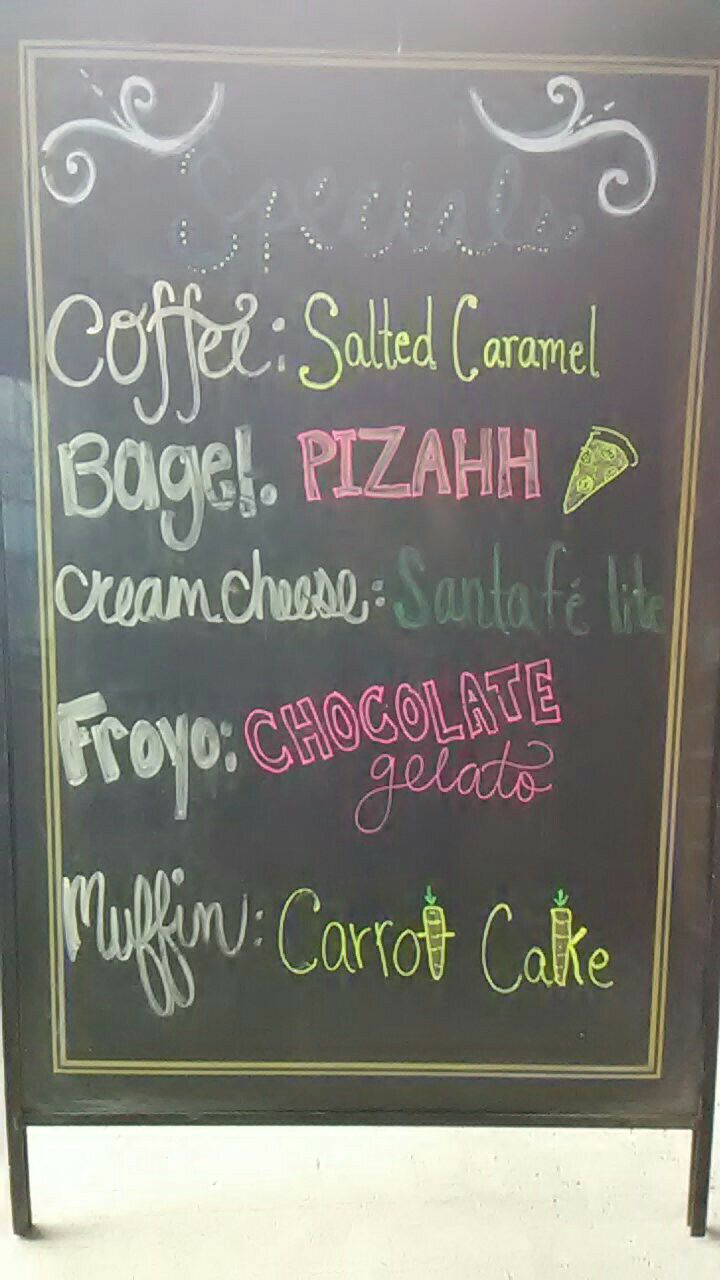 Specials
Coffee: Salted Caramel
Bagel. PIZAHH
Cream cheese: Santa fé lite
Froyo: CHOCOLATE
gelato
Muffin: Carrot Cake